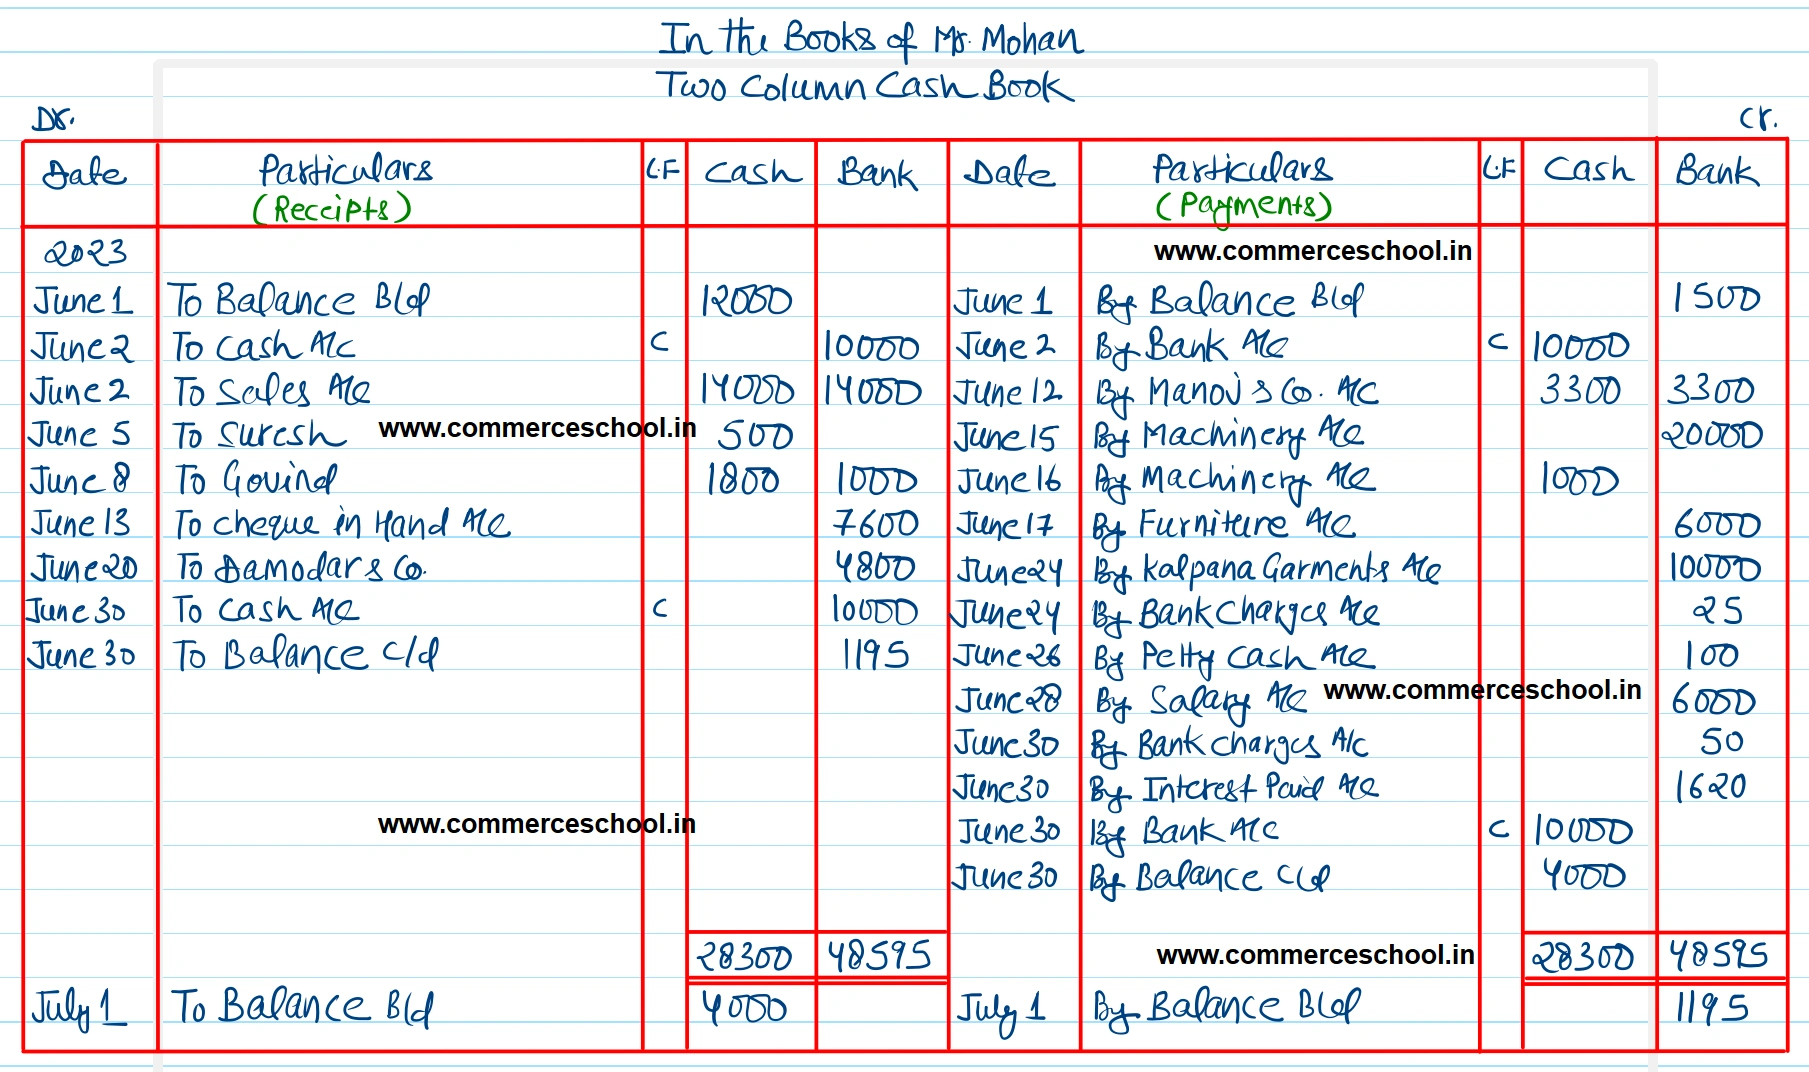 In the Books of Mr. Mohan
Two Column Cash Book
Dr. Cr.
Date Particulars L.F Cash Bank Date Particulars L.F Cash Bank
(Receipts) (Payments)
2023 www.commerceschool.in
June 1 To Balance B/d 12000 June 1 By Balance B/d 1500
June 2 To Cash A/c C 10000 June 2 By Bank A/c C 10000
June 2 To Sales A/c 14000 14000 June 12 By Manoj & Co. A/c 3300 3300
June 5 To Suresh www.commerceschool.in 500 June 15 By Machinery A/c 20000
June 8 To Govind 1800 1000 June 16 By Machinery A/c 1000
June 13 To cheque in Hand A/c 7600 June 17 By Furniture A/c 6000
June 20 To Damodar & Co. 4800 June 24 By Kalpana Garments A/c 10000
June 30 To Cash A/c C 10000 June 24 By Bank Charges A/c 25
June 30 To Balance c/d 1195 June 26 By Petty Cash A/c 100
June 28 By Salary A/c www.commerceschool.in 6000
June 30 By Bank charges A/c 50
June 30 By Interest Paid A/c 1620
www.commerceschool.in June 30 By Bank A/c C 10000
June 30 By Balance c/d 4000
28300 48595 www.commerceschool.in 28300 48595
July 1 To Balance B/d 4000 July 1 By Balance B/d 1195